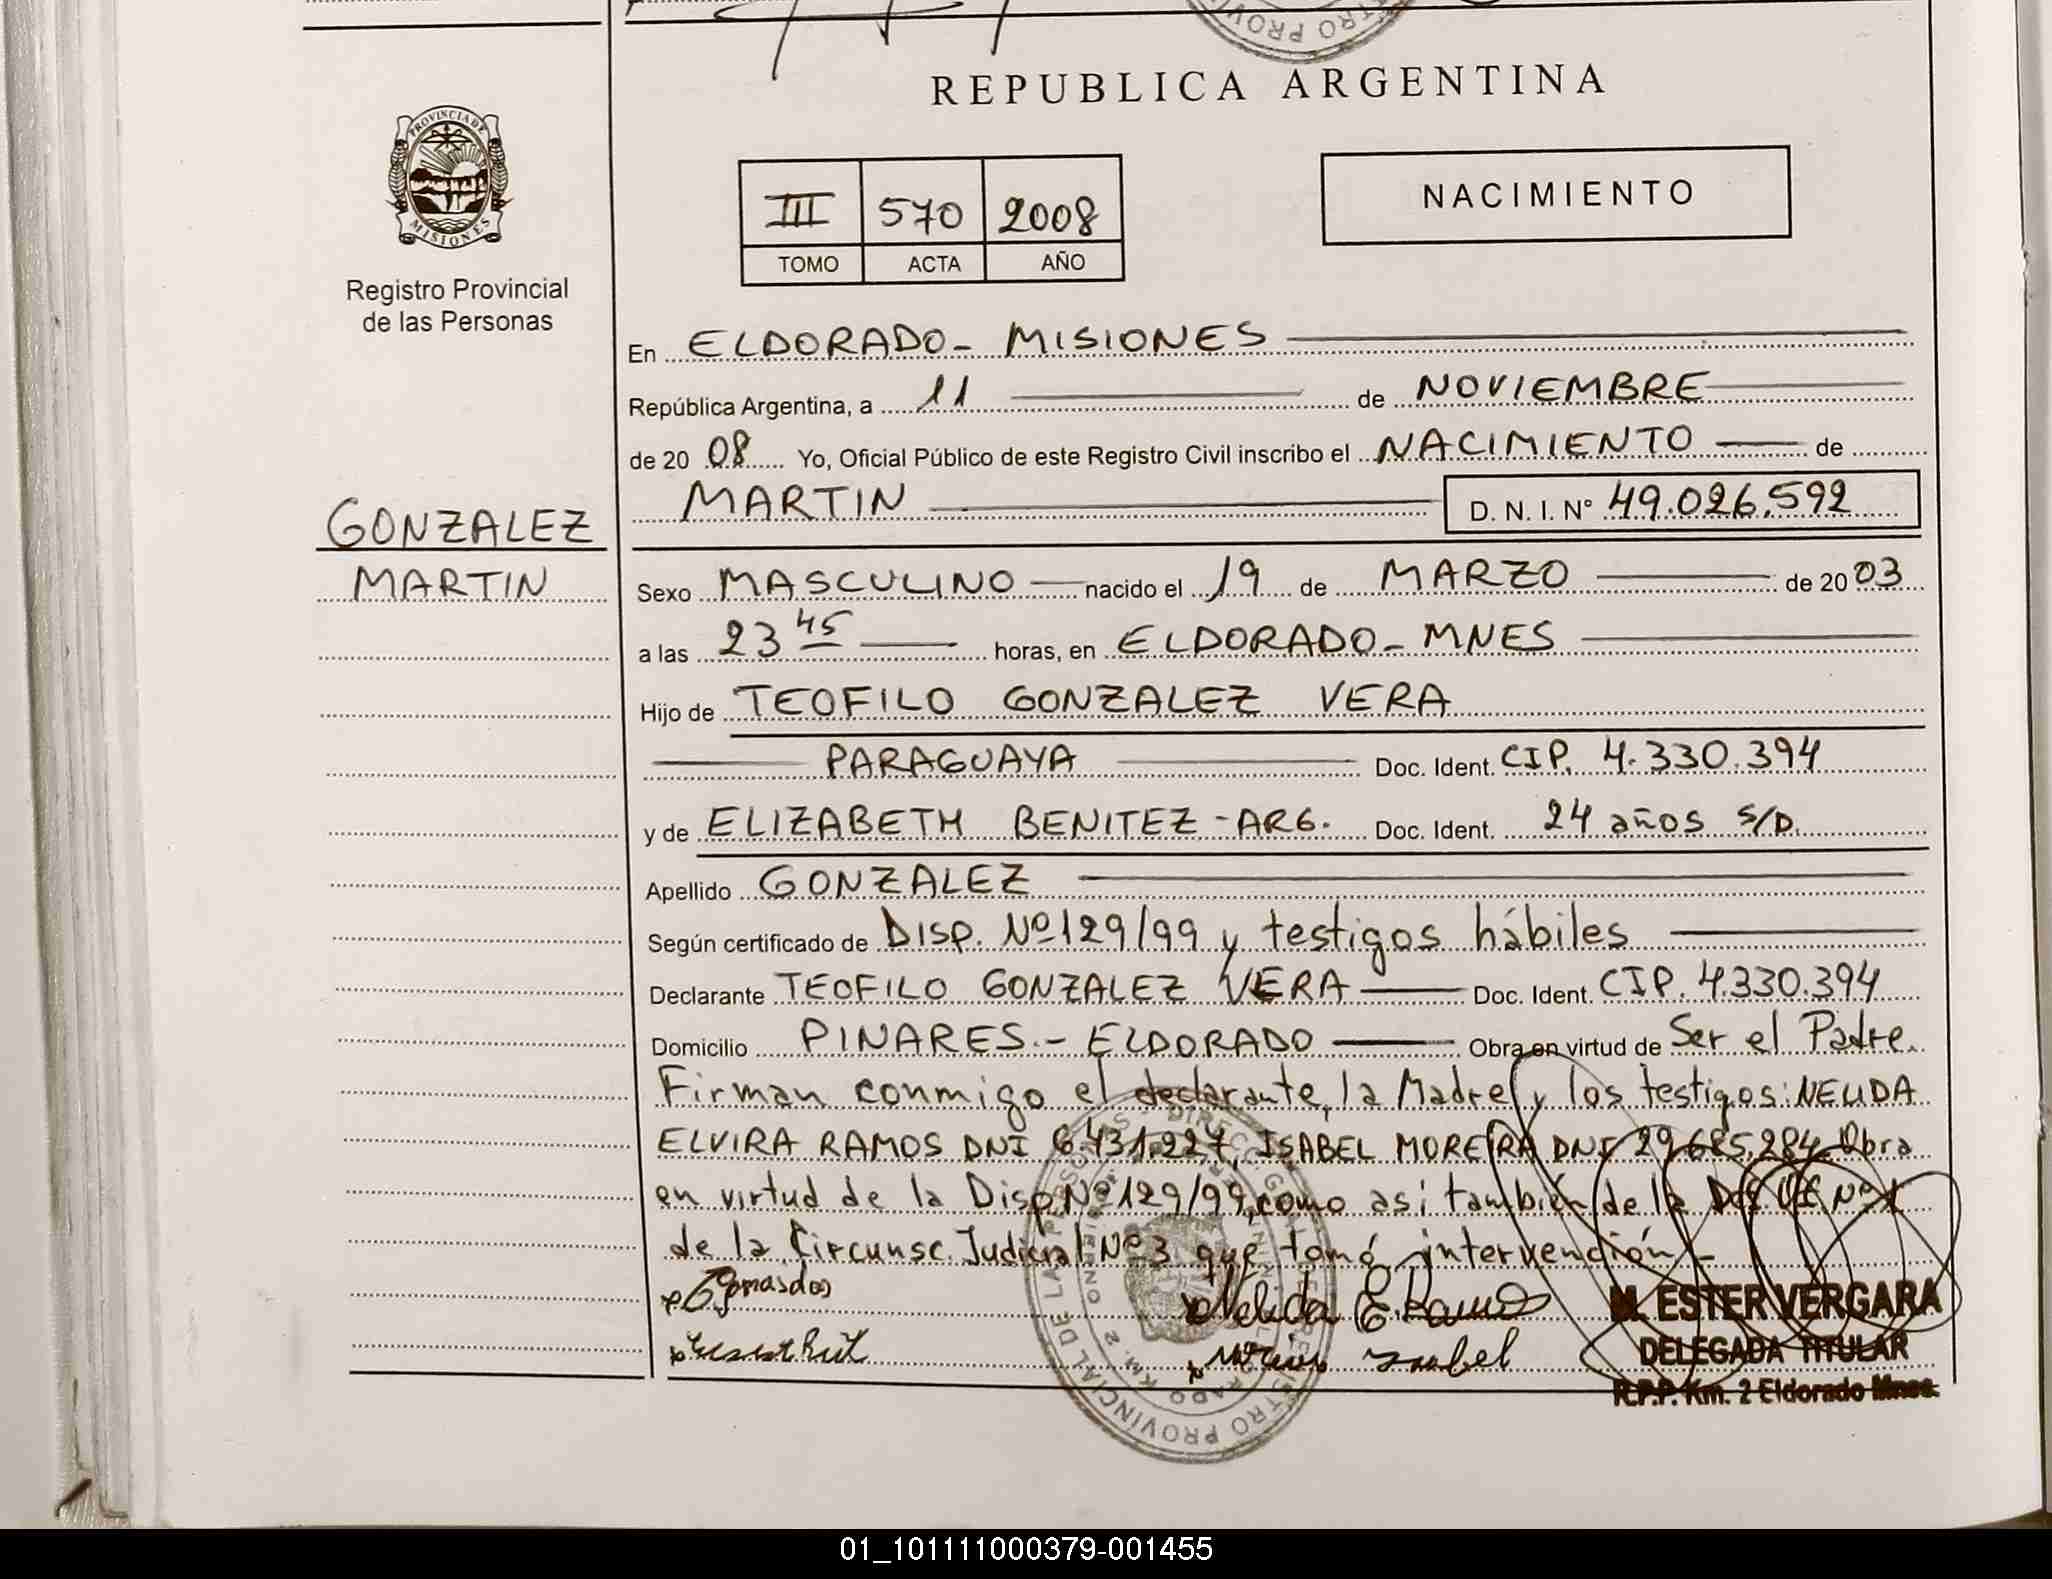 REPUBLICA ARGENTINA
PROVINCIA DE
MISIONES
Registro Provincial
de las Personas
III 570 2008
TOMO ACTA AÑO
NACIMIENTO
En ELDORADO - MISIONES
República Argentina, a 11 de NOVIEMBRE
de 20 08 Yo, Oficial Público de este Registro Civil inscribo el NACIMIENTO de
MARTIN D. N. I. Nº 49.026.592
GONZALEZ
MARTIN
Sexo MASCULINO nacido el 19 de MARZO de 20 03
a las 23 45 horas, en ELDORADO - MNES
Hijo de TEOFILO GONZALEZ VERA
PARAGUAYA Doc. Ident. CIP. 4.330.394
y de ELIZABETH BENITEZ - ARG. Doc. Ident. 24 años S/D.
Apellido GONZALEZ
Según certificado de DISP. Nº 129/99 y testigos hábiles
Declarante TEOFILO GONZALEZ VERA Doc. Ident. CIP. 4.330.394
Domicilio PINARES - ELDORADO Obra en virtud de Ser el Padre.
Firman conmigo el declarante, la Madre y los testigos: NELIDA
ELVIRA RAMOS DNI 6.431.227, ISABEL MOREIRA DNI 29.685.284. Obra
en virtud de la Disp. Nº 129/99, como asi también de la Nº 1
de la Circunsc. Judicial Nº 3 que tomó intervención -
Nelida E. Ramos
Isabel
M. ESTER VERGARA
DELEGADA TITULAR
R.P.P. Km. 2 Eldorado Mnes.
01_101111000379-001455